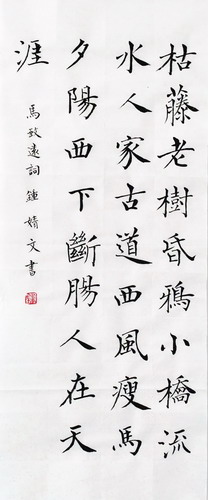 枯藤老樹昏鴉小橋流
水人家古道西風瘦馬
夕陽西下斷腸人在天
涯
馬致遠詞鍾婧文書